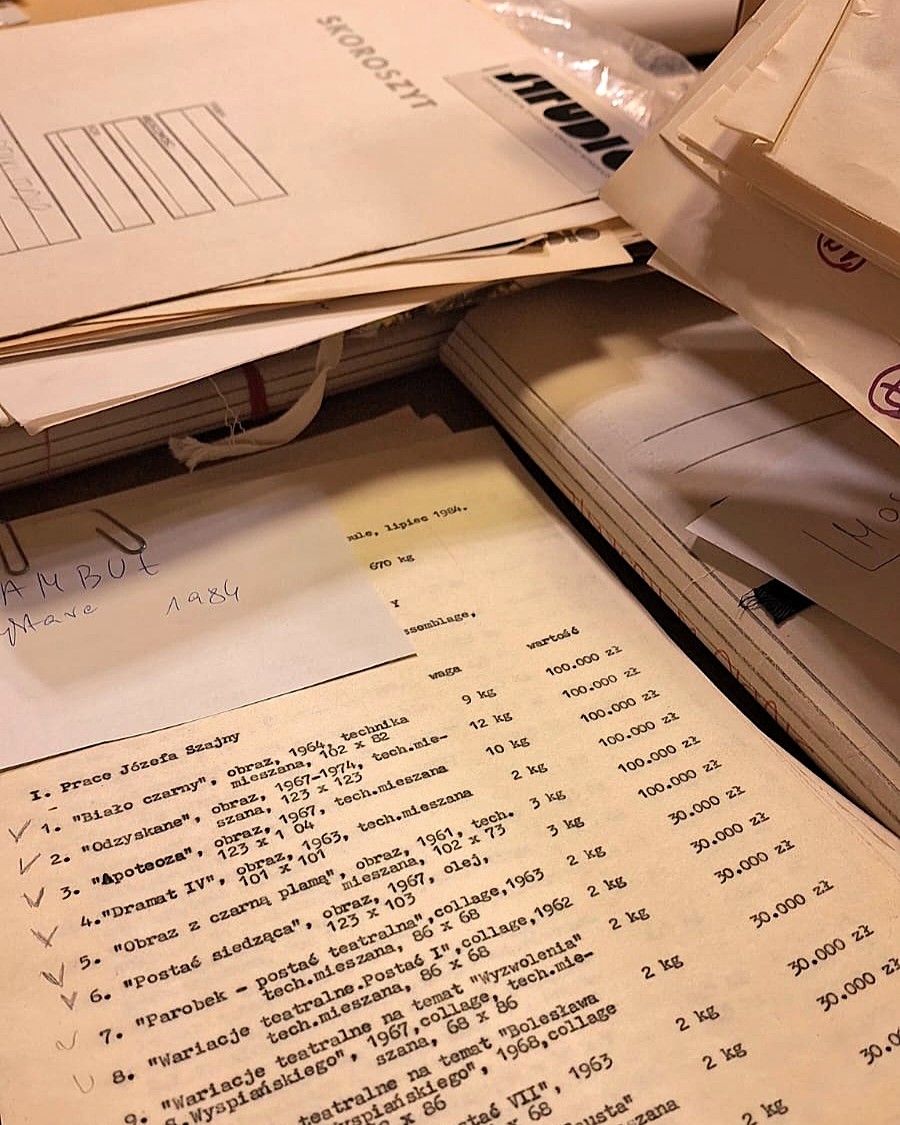 SKOROSZYT
STUDIO
1984
lipiec 1984.
670 kg
waga wartość
I. Prace Józefa Szajny
1. "Biało czarny", obraz, 1964, technika 9 kg 100.000 zł
mieszana, 102 x 82
2. "Odzyskane", obraz, 1967-1974, tech.mie- 12 kg 100.000 zł
szana, 123 x 123
3. "Apoteoza", obraz, 1967, tech.mieszana 10 kg 100.000 zł
123 x 1 04
4."Dramat IV", obraz, 1963, tech.mieszana 2 kg 100.000 zł
101 x 101
5. "Obraz z czarną plamą", obraz, 1961, tech. 3 kg 100.000 zł
mieszana, 102 x 73
6. "Postać siedząca", obraz, 1967, olej, 3 kg 100.000 zł
123 x 103
7. "Parobek - postać teatralna",collage,1963 2 kg 30.000 zł
tech.mieszana, 86 x 68
8. "Wariacje teatralne.Postać I",collage,1962 2 kg 30.000 zł
tech.mieszana, 86 x 68
9. "Wariacje teatralne na temat "Wyzwolenia" 2 kg 30.000 zł
S.Wyspiańskiego", 1967,collage, tech.mie-
szana, 68 x 86
teatralne na temat "Bolesława 2 kg 30.000 zł
yspiańskiego", 1968,collage
x 86
VII", 1963 2 kg 30.000 zł
x 68
2 kg
2 kg